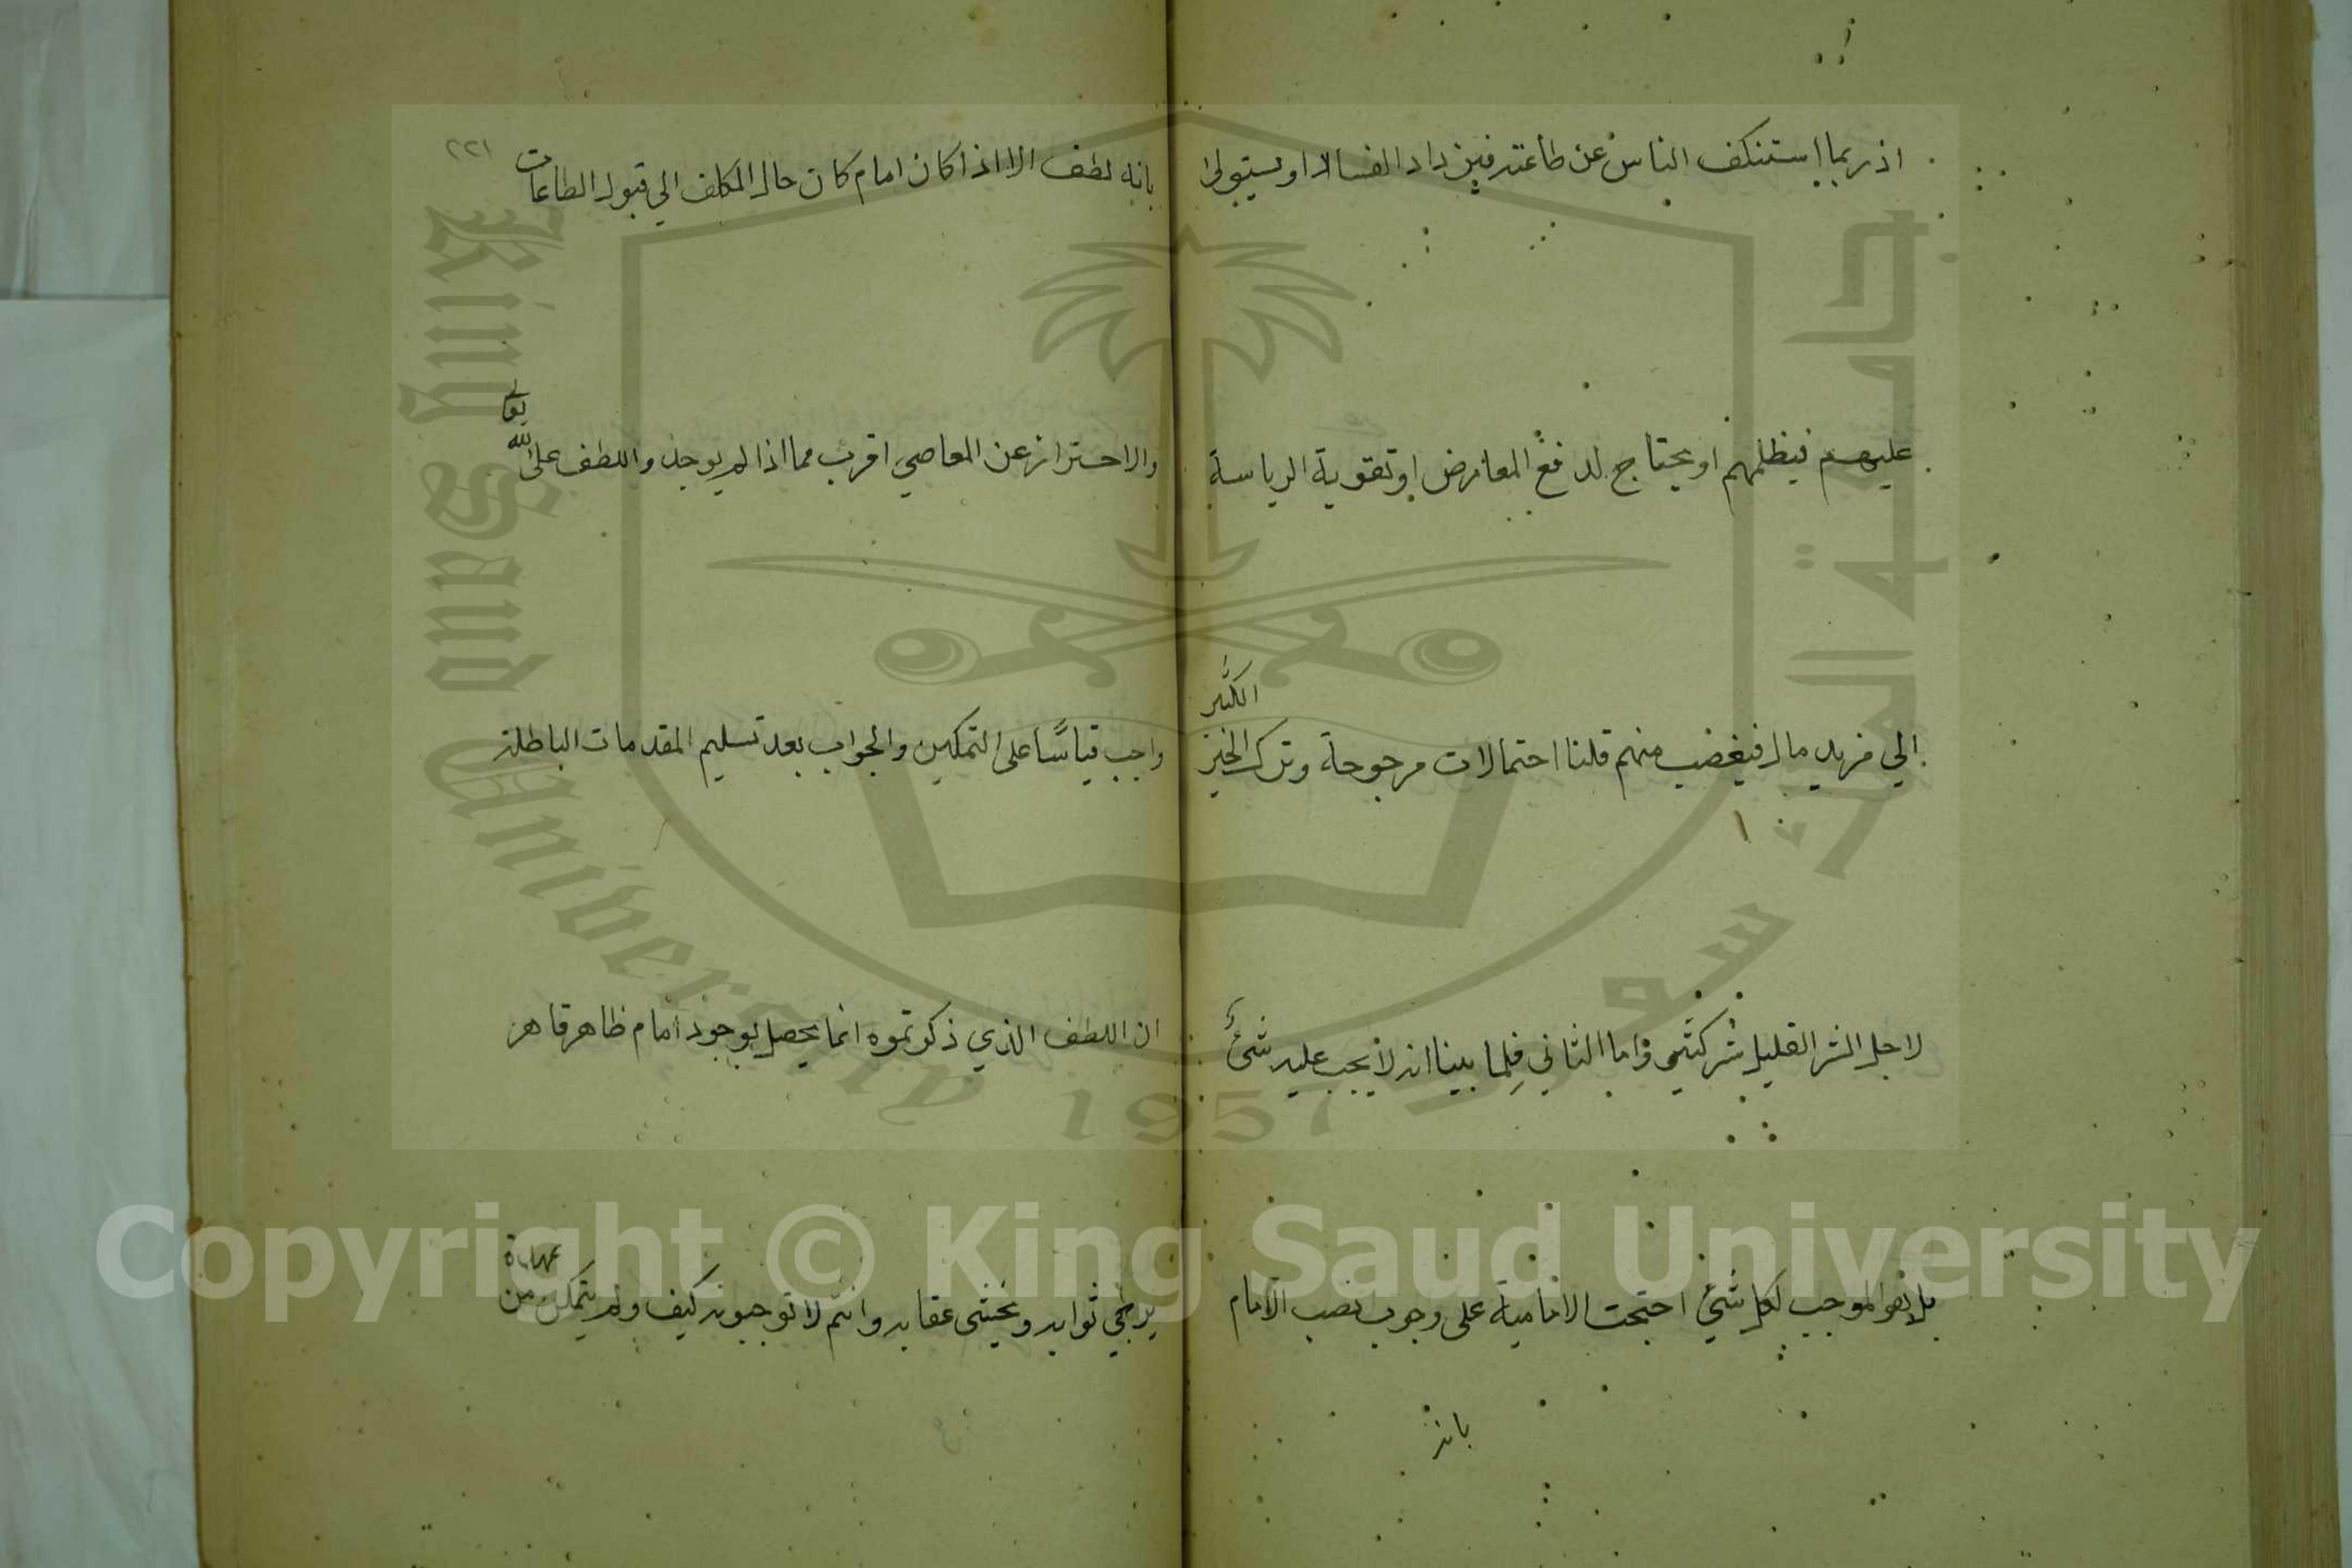 اذ ربما استنكف الناس عن طاعته فيزداد الفساد او يستولى
عليهم فيظلمهم او يحتاج لدفع المعارض او تقوية الرياسة
الي مزيد مال فيغضب منهم قلنا احتمالات مرجوحة وترك الخير الكثير
لاجل الشر القليل شر كثير واما الثاني فلما بينا انه لا يجب عليه شئ
بل هو الموجب لكل شئ احتجت الامامية على وجوب نصب الامام
بانه
٢٢١
بانه لطف الا اذا كان امام كان حال المكلف الي قبول الطاعات
والاحتراز عن المعاصي اقرب مما اذا لم يوجد واللطف على الله تعالى
واجب قياسًا على التمكين والجواب بعد تسليم المقدمات الباطلة
ان اللطف الذي ذكرتموه انما يحصل بوجود امام ظاهر قاهر
يرجى ثوابه ويخشى عقابه وانتم لا توجبونه كيف ولم يتمكن من عهدة
جامعة الملك سعود
King Saud University
1957
Copyright © King Saud University